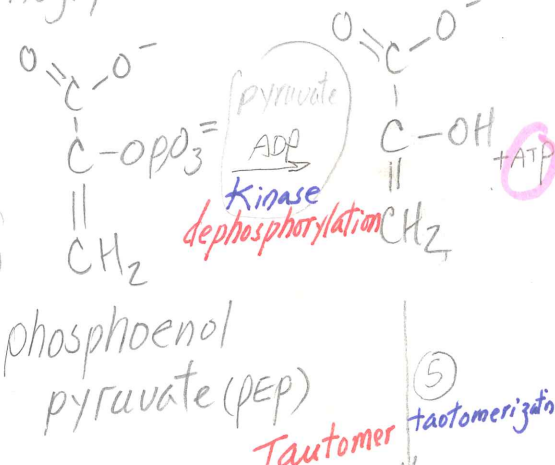 O O⁻
C
C-OPO₃⁼
CH₂
pyruvate
ADP
Kinase
dephosphorylation
O O⁻
C
C-OH
CH₂
+ATP
phosphoenol
pyruvate (PEP)
5
Tautomer
taotomerizatn